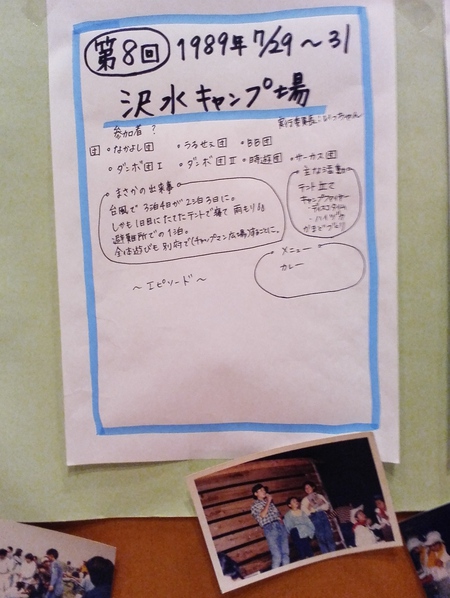 第8回 1989年 7/29～31
沢水キャンプ場
実行委員長：いっちゃん
参加者 ?
団 •なかよし団 •うるせえ団 •BB団
•ダンボ団Ⅰ •ダンボ団Ⅱ •時遊団 •サーカス団
まさかの出来事
台風で 3泊4日が2泊3日に。
しかも1日目にたてたテントで寝て雨もり。
避難所での1泊。
全体遊びも別府で(チャップマン広場)することに。
主な活動
テント立て
キャンプファイヤー
ディスコタイム
ハイジカ
かまどづくり
メニュー
カレー
～エピソード～